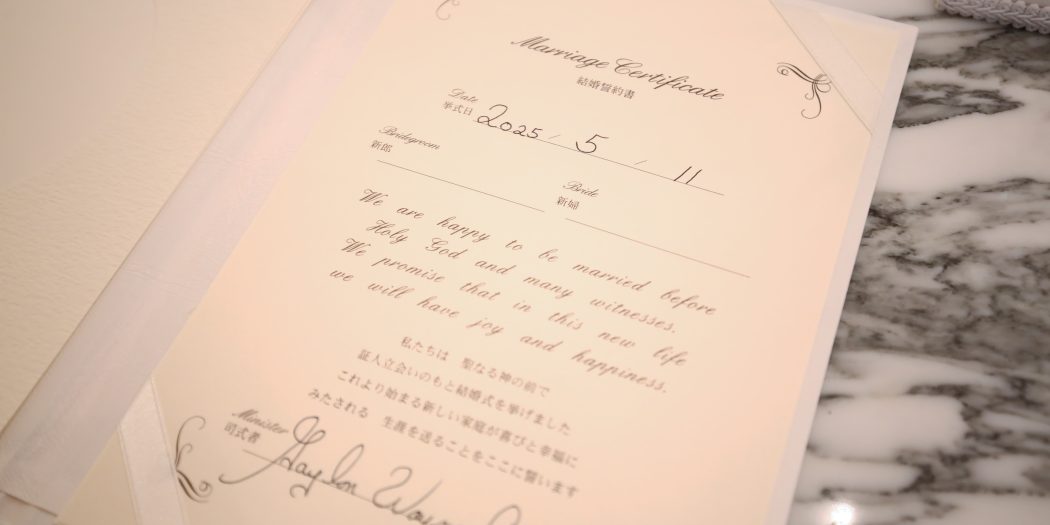 Marriage Certificate
結婚誓約書
Date
挙式日 2025 / 5 / 11
Bridegroom
新郎
Bride
新婦
We are happy to be married before
Holy God and many witnesses.
We promise that in this new life
we will have joy and happiness.
私たちは 聖なる神の前で
証人立会いのもと結婚式を挙げました
これより始まる新しい家庭が喜びと幸福に
みたされる 生涯を送ることをここに誓います
Minister
司式者 Gaylon